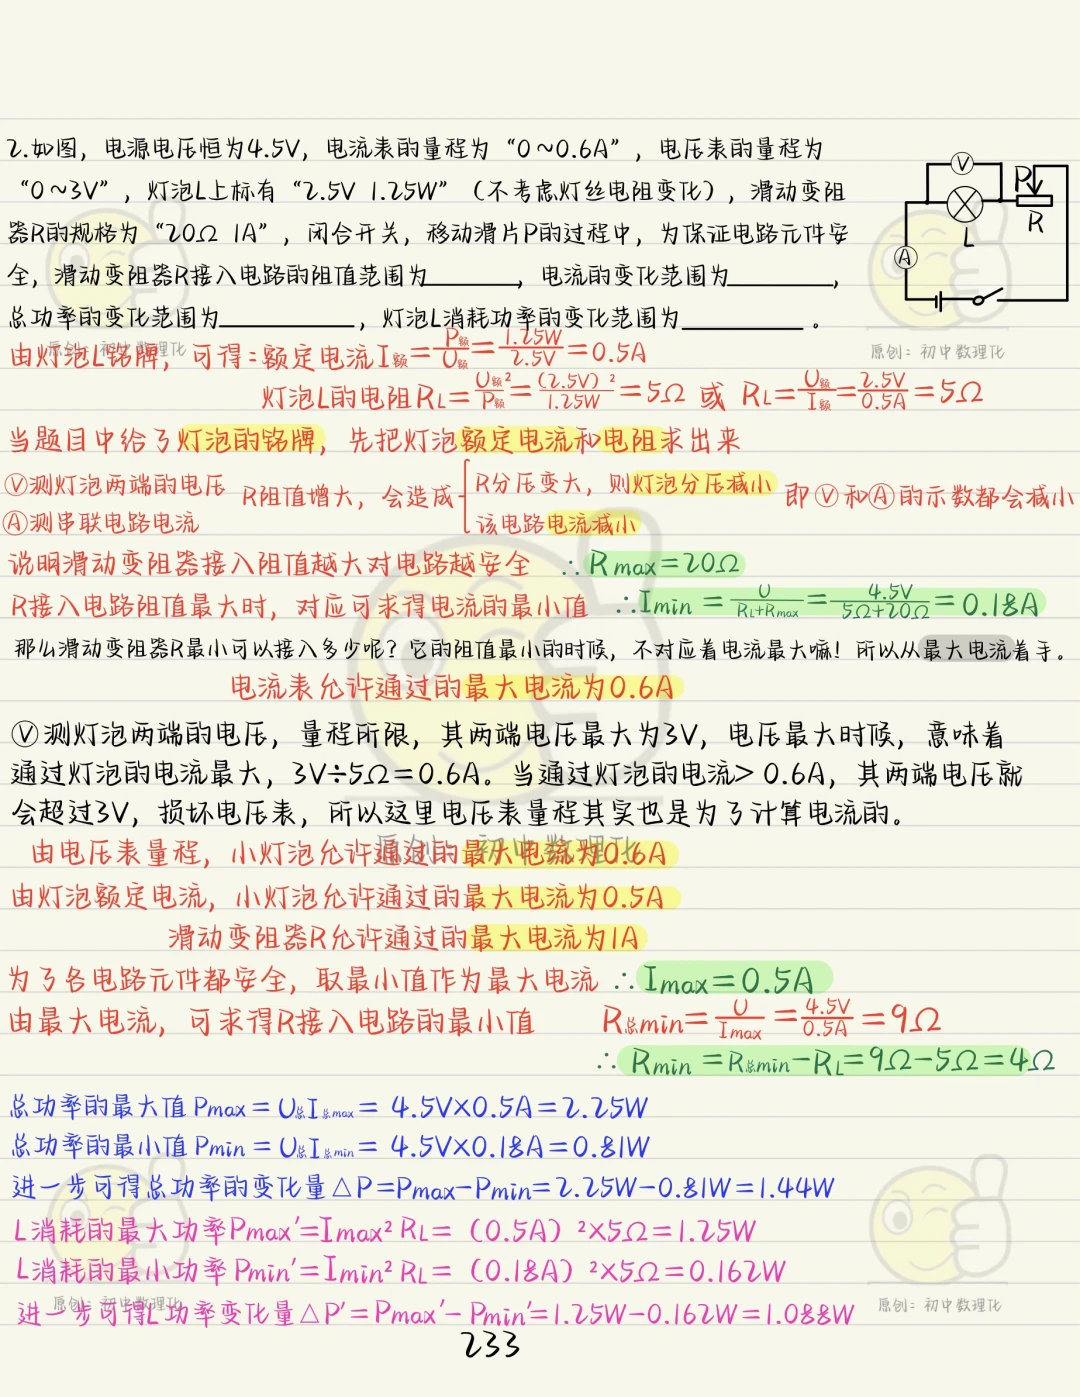 2.如图，电源电压恒为4.5V，电流表的量程为“0~0.6A”，电压表的量程为
“0~3V”，灯泡L上标有“2.5V 1.25W”（不考虑灯丝电阻变化），滑动变阻
器R的规格为“20Ω 1A”，闭合开关，移动滑片P的过程中，为保证电路元件安
全，滑动变阻器R接入电路的阻值范围为________，电流的变化范围为________，
总功率的变化范围为________，灯泡L消耗功率的变化范围为________。
V
P
R
L
A
原创：初中数理化
原创：初中数理化
由灯泡L铭牌，可得：额定电流I额=P额/U额=1.25W/2.5V=0.5A
灯泡L的电阻RL=U额²/P额=(2.5V)²/1.25W=5Ω 或 RL=U额/I额=2.5V/0.5A=5Ω
当题目中给了灯泡的铭牌，先把灯泡额定电流和电阻求出来
Ⓥ测灯泡两端的电压
Ⓐ测串联电路电流
R阻值增大，会造成
R分压变大，则灯泡分压减小
该电路电流减小
即Ⓥ和Ⓐ的示数都会减小
说明滑动变阻器接入阻值越大对电路越安全 ∴Rmax=20Ω
R接入电路阻值最大时，对应可求得电流的最小值 ∴Imin=U/RL+Rmax=4.5V/5Ω+20Ω=0.18A
那么滑动变阻器R最小可以接入多少呢？它的阻值最小的时候，不对应着电流最大嘛！所以从最大电流着手。
电流表允许通过的最大电流为0.6A
Ⓥ测灯泡两端的电压，量程所限，其两端电压最大为3V，电压最大时候，意味着
通过灯泡的电流最大，3V÷5Ω=0.6A。当通过灯泡的电流> 0.6A，其两端电压就
会超过3V，损坏电压表，所以这里电压表量程其实也是为了计算电流的。
原创：初中数理化
由电压表量程，小灯泡允许通过的最大电流为0.6A
由灯泡额定电流，小灯泡允许通过的最大电流为0.5A
滑动变阻器R允许通过的最大电流为1A
为了各电路元件都安全，取最小值作为最大电流 ∴Imax=0.5A
由最大电流，可求得R接入电路的最小值 R总min=U/Imax=4.5V/0.5A=9Ω
∴Rmin=R总min-RL=9Ω-5Ω=4Ω
总功率的最大值Pmax=U总I总max=4.5V×0.5A=2.25W
总功率的最小值Pmin=U总I总min=4.5V×0.18A=0.81W
进一步可得总功率的变化量△P=Pmax-Pmin=2.25W-0.81W=1.44W
L消耗的最大功率Pmax′=Imax²RL=（0.5A）²×5Ω=1.25W
L消耗的最小功率Pmin′=Imin²RL=（0.18A）²×5Ω=0.162W
进一步可得L功率变化量△P′=Pmax′-Pmin′=1.25W-0.162W=1.088W
原创：初中数理化
原创：初中数理化
233